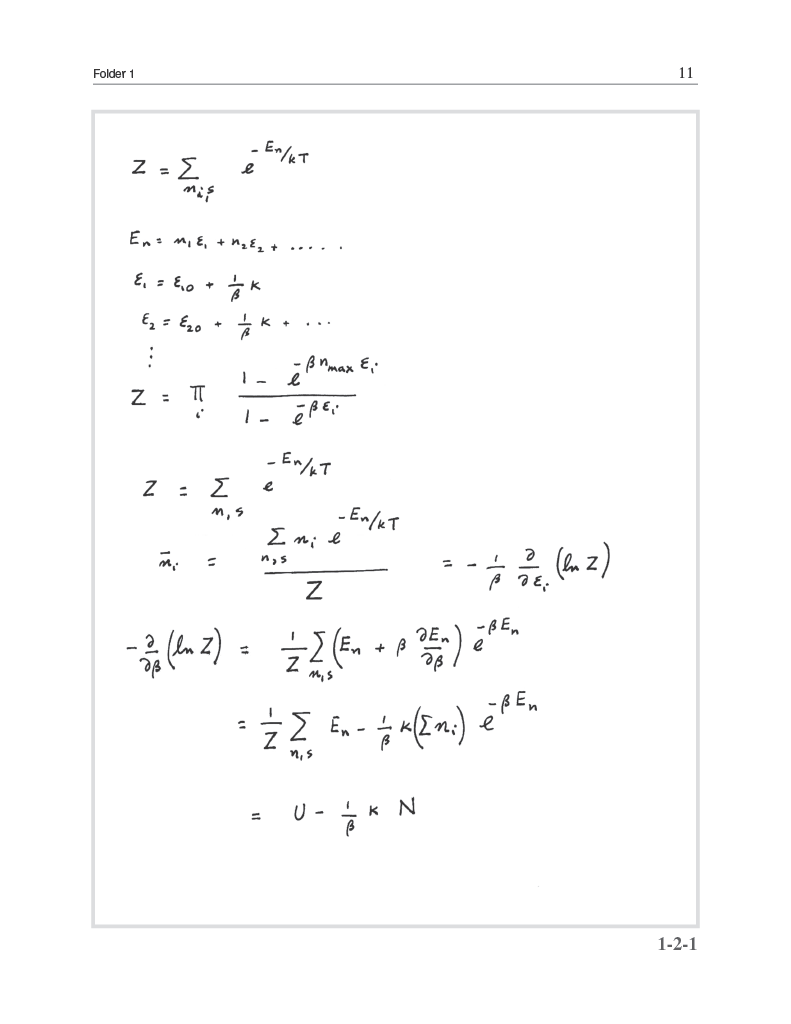 Folder 1 11
Z = Σ_{n_i,s} e^{-E_n/kT}
E_n = n_1 ε_1 + n_2 ε_2 + .....
ε_1 = ε_{10} + 1/β K
ε_2 = ε_{20} + 1/β K + ...
⋮
Z = Π_i (1 - e^{-β n_max ε_i}) / (1 - e^{-β ε_i})
Z = Σ_{n,s} e^{-E_n/kT}
n̄_i = (Σ_{n,s} n_i e^{-E_n/kT}) / Z = - 1/β ∂/∂ε_i (ln Z)
- ∂/∂β (ln Z) = 1/Z Σ_{n,s} (E_n + β ∂E_n/∂β) e^{-βE_n}
= 1/Z Σ_{n,s} E_n - 1/β K(Σ n_i) e^{-βE_n}
= U - 1/β K N
1-2-1